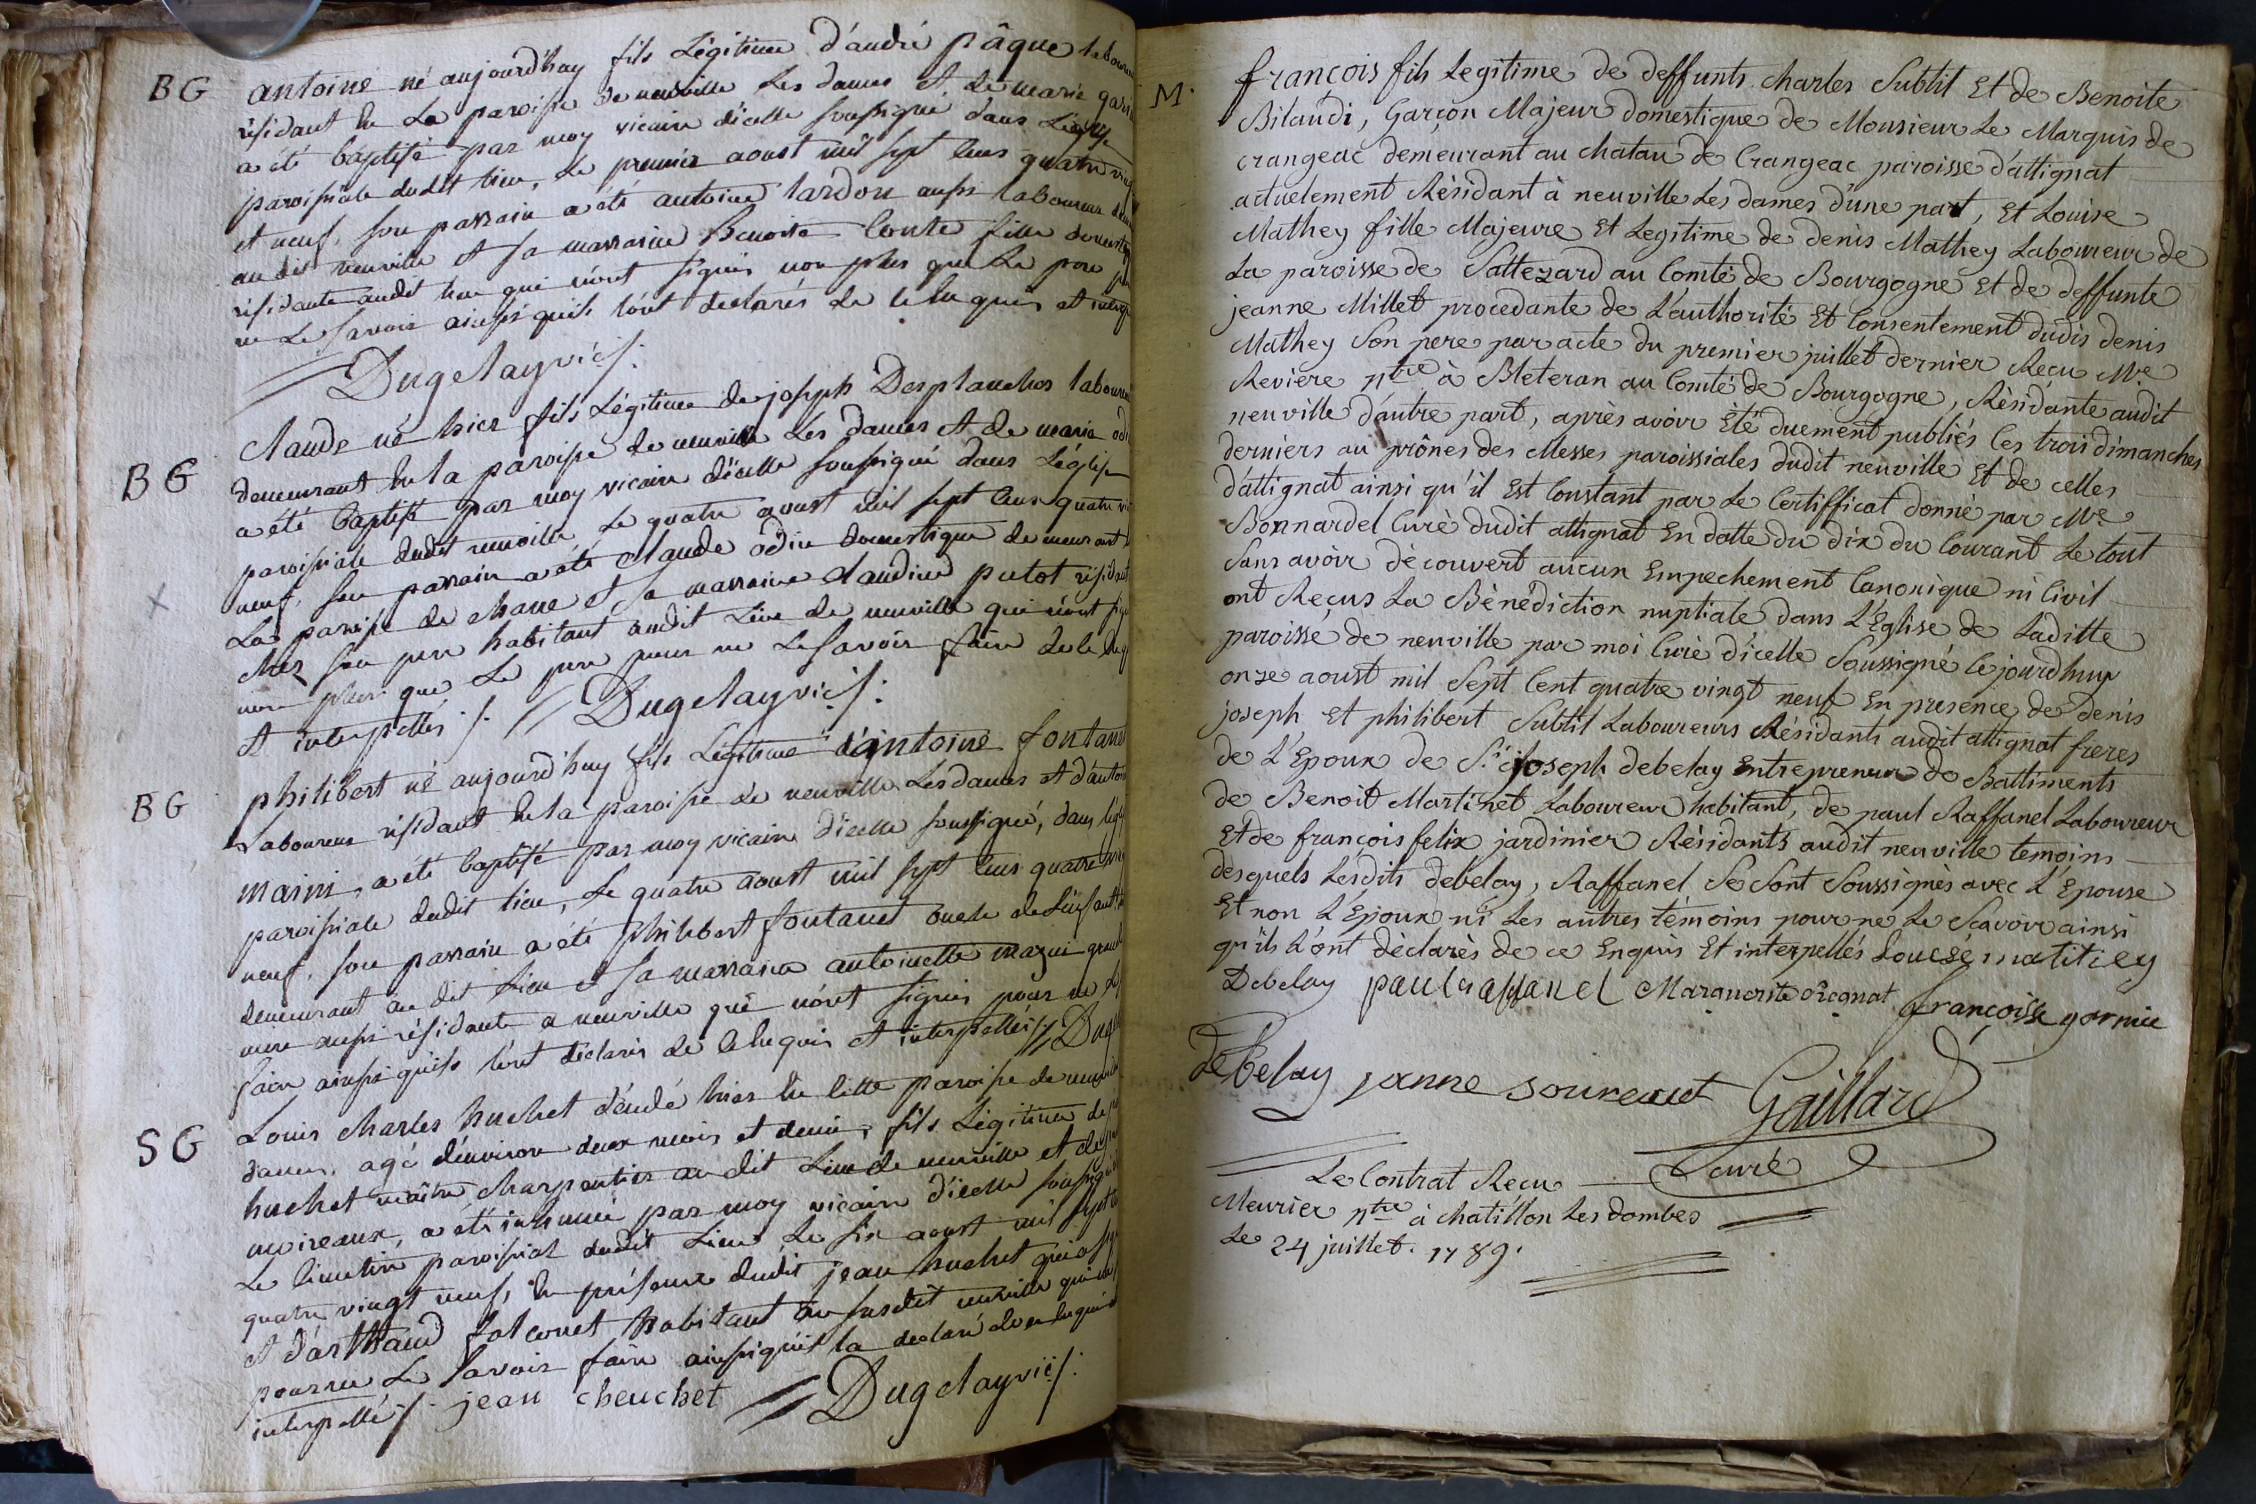 BG
antoine né aujourd'huy fils Légitime d'andré pâque
résidant En La paroisse de neuville Les dames Et de marie
a été baptisé par moy vicaire d'icelle soussigné dans L'église
paroissiale dudit lieu, Le premier aoust mil sept Cens quatre
et neuf. son parrain a été antoine lardon aussi laboureur
audit neuville et sa marraine Benoite Conte fille
résidante audit lieu qui n'ont signés non plus que Le pere
ne Le savoir ainsi qu'ils l'ont declarés de ce Enquis et
Dugelayvic/.
BG
Claude né hier fils Légitime de joseph Desplanches
demeurant En la paroisse de neuville Les dames et de marie
a été baptisé par moy vicaire d'icelle soussigné dans L'église
paroissiale dudit neuville, Le quatre aoust mil sept Cens quatre
neuf. son parrain a été Claude odin domestique demeurant
La paroisse de et sa marraine claudine putot
chez son pere habitant audit Lieu de neuville qui n'ont
non plus que Le pere pour ne Le savoir faire de ce
et interpellés/. Dugelayvic/.
BG
philibert né aujourd'huy fils Légitime d'antoine fontanet
Laboureur résidant En la paroisse de neuville Les dames et
, a été baptisé par moy vicaire d'icelle soussigné, dans
paroissiale dudit lieu, Le quatre aoust mil sept Cens quatre
neuf. son parrain a été philibert fontanet oncle de L'enfant
demeurant audit Lieu et sa marraine antoinette
mere aussi résidante a neuville qui n'ont signés pour ne
faire ainsi qu'ils l'ont déclarés de ce Enquis et interpellés/.
SG
Louis charles huchet décédé hier En cette paroisse de
dames, agé d'environ deux mois et demi, fils Légitime de
huchet maître charpentier au dit Lieu de neuville et de
moireaux, a été inhumé par moy vicaire d'icelle
Le Cimetiere paroissial dudit Lieu Le six aoust mil sept
quatre vingt neuf, En présence dudit jean huchet qui a
et d'arthaud falconet habitant au susdit neuville qui
pour ne Le savoir faire ainsi qu'il la declaré de ce Enquis
interpellé/. jean cheuchet Dugelayvic/.
M.
françois fils Legitime de deffunts charles Subtil Et de Benoite
Bilandi, Garçon Majeur domestique de Monsieur Le Marquis de
crangeac demeurant au chatau de Crangeac paroisse d'attignat
actuelement Résidant à neuville Les dames d'une part, Et Louise
Mathey fille Majeure Et Legitime de denis Mathey Laboureur de
La paroisse de Sattezard au Comté de Bourgogne Et de deffunte
jeanne Millet procedante de L'authorité Et Consentement dudis denis
Mathey Son pere par acte du premier juillet dernier Reçu Me
Reviere ntre à Bleteran au Comté de Bourgogne, Résidante audit
neuville d'autre part, après avoir Eté duement publiés les trois dimanches
derniers au prônes des Messes paroissiales dudit neuville Et de celles
d'attignat ainsi qu'il Est Constant par Le Certifficat donné par Mre
Bonnardel Curé dudit attignat En datte du dix du Courant Le tout
Sans avoir découvert aucun Empechement Canonique ni Civil
ont Reçus La Bénédiction nuptiale dans L'Eglise de Laditte
paroisse de neuville par moi Curé d'icelle Soussigné Cejourdhuy
onze aoust mil Sept Cent quatre vingt neuf En presence de denis
joseph Et philibert Subtil Laboureurs Résidants audit attignat freres
de L'Epoux de Sr joseph debelay Entrepreneur de Battiments
de Benoit Martinet Laboureur habitant, de paul Raffanel Laboureur
Et de françois felix jardinier Résidants audit neuville temoins
desquels Lesdits debelay, Raffanel Se Sont Soussignés avec L'Epouse
Et non L'Epoux ni Les autres témoins pour ne Le Scavoir ainsi
qu'ils L'ont déclarés de ce Enquis Et interpellés Loucsé matitiey
Debelay paul raffanel Marguerite françoise garnie
debelay janne Gaillard
curé
Le Contrat Reçu
Meurier ntre à chatillon Les dombes
Le 24 juillet. 1789.